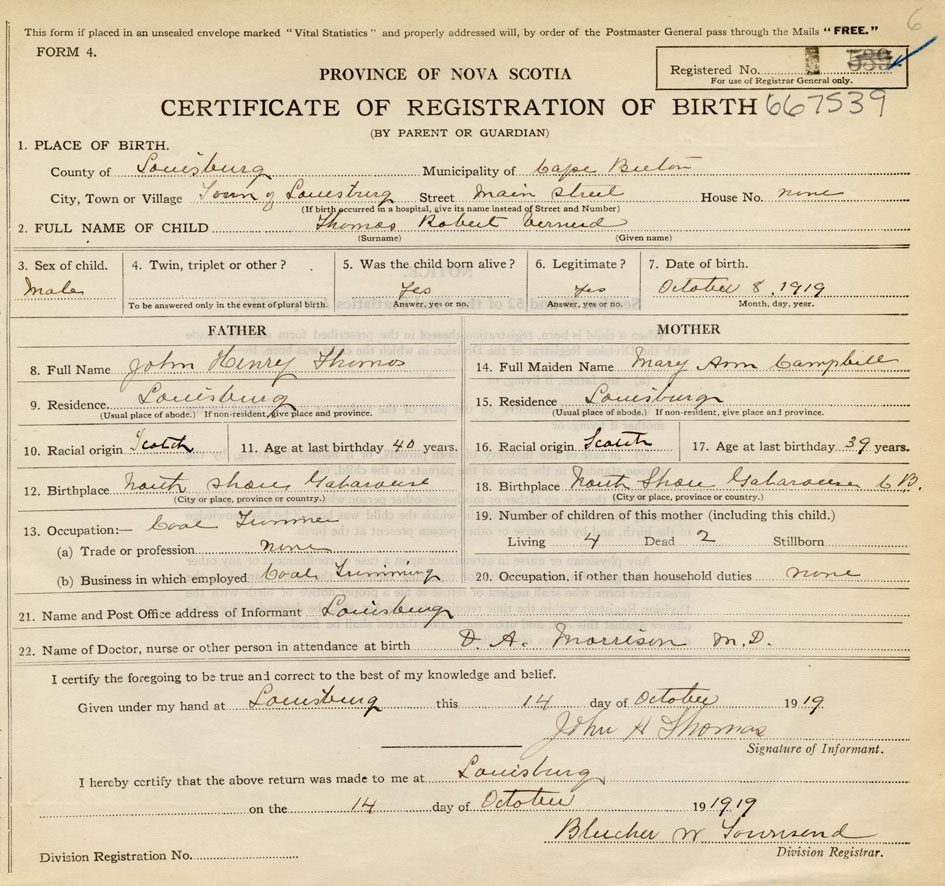 6
This form if placed in an unsealed envelope marked "Vital Statistics" and properly addressed will, by order of the Postmaster General pass through the Mails "FREE."
FORM 4.
Registered No. 539
For use of Registrar General only.
PROVINCE OF NOVA SCOTIA
CERTIFICATE OF REGISTRATION OF BIRTH 667539
(BY PARENT OR GUARDIAN)
1. PLACE OF BIRTH.
County of Louisburg Municipality of Cape Breton
City, Town or Village Town of Louisburg Street Main Street House No. none
(If birth occurred in a hospital, give its name instead of Street and Number)
2. FULL NAME OF CHILD Thomas Robert
(Surname) (Given name)
3. Sex of child. 4. Twin, triplet or other? 5. Was the child born alive? 6. Legitimate? 7. Date of birth.
Male Yes yes October 8, 1919
To be answered only in the event of plural birth. Answer, yes or no. Answer, yes or no. Month, day, year.
FATHER MOTHER
8. Full Name John Henry Thomas 14. Full Maiden Name Mary Ann Campbell
9. Residence. Louisburg 15. Residence Louisburg
(Usual place of abode.) If non-resident, give place and province. (Usual place of abode.) If non-resident, give place and province.
10. Racial origin Scotch 11. Age at last birthday 40 years. 16. Racial origin Scotch 17. Age at last birthday 39 years.
12. Birthplace North Shore Gabarouse 18. Birthplace North Shore Gabarouse C B.
(City or place, province or country.) (City or place, province or country.)
13. Occupation:— Coal Trimmer 19. Number of children of this mother (including this child.)
(a) Trade or profession none Living 4 Dead 2 Stillborn
(b) Business in which employed Coal Trimming 20. Occupation, if other than household duties none
21. Name and Post Office address of Informant Louisburg
22. Name of Doctor, nurse or other person in attendance at birth D. A. Morrison M.D.
I certify the foregoing to be true and correct to the best of my knowledge and belief.
Given under my hand at Louisburg this 14 day of October 1919
John H Thomas
Signature of Informant.
I hereby certify that the above return was made to me at Louisburg
on the 14 day of October 191919
Blucher W Townsend
Division Registration No. Division Registrar.